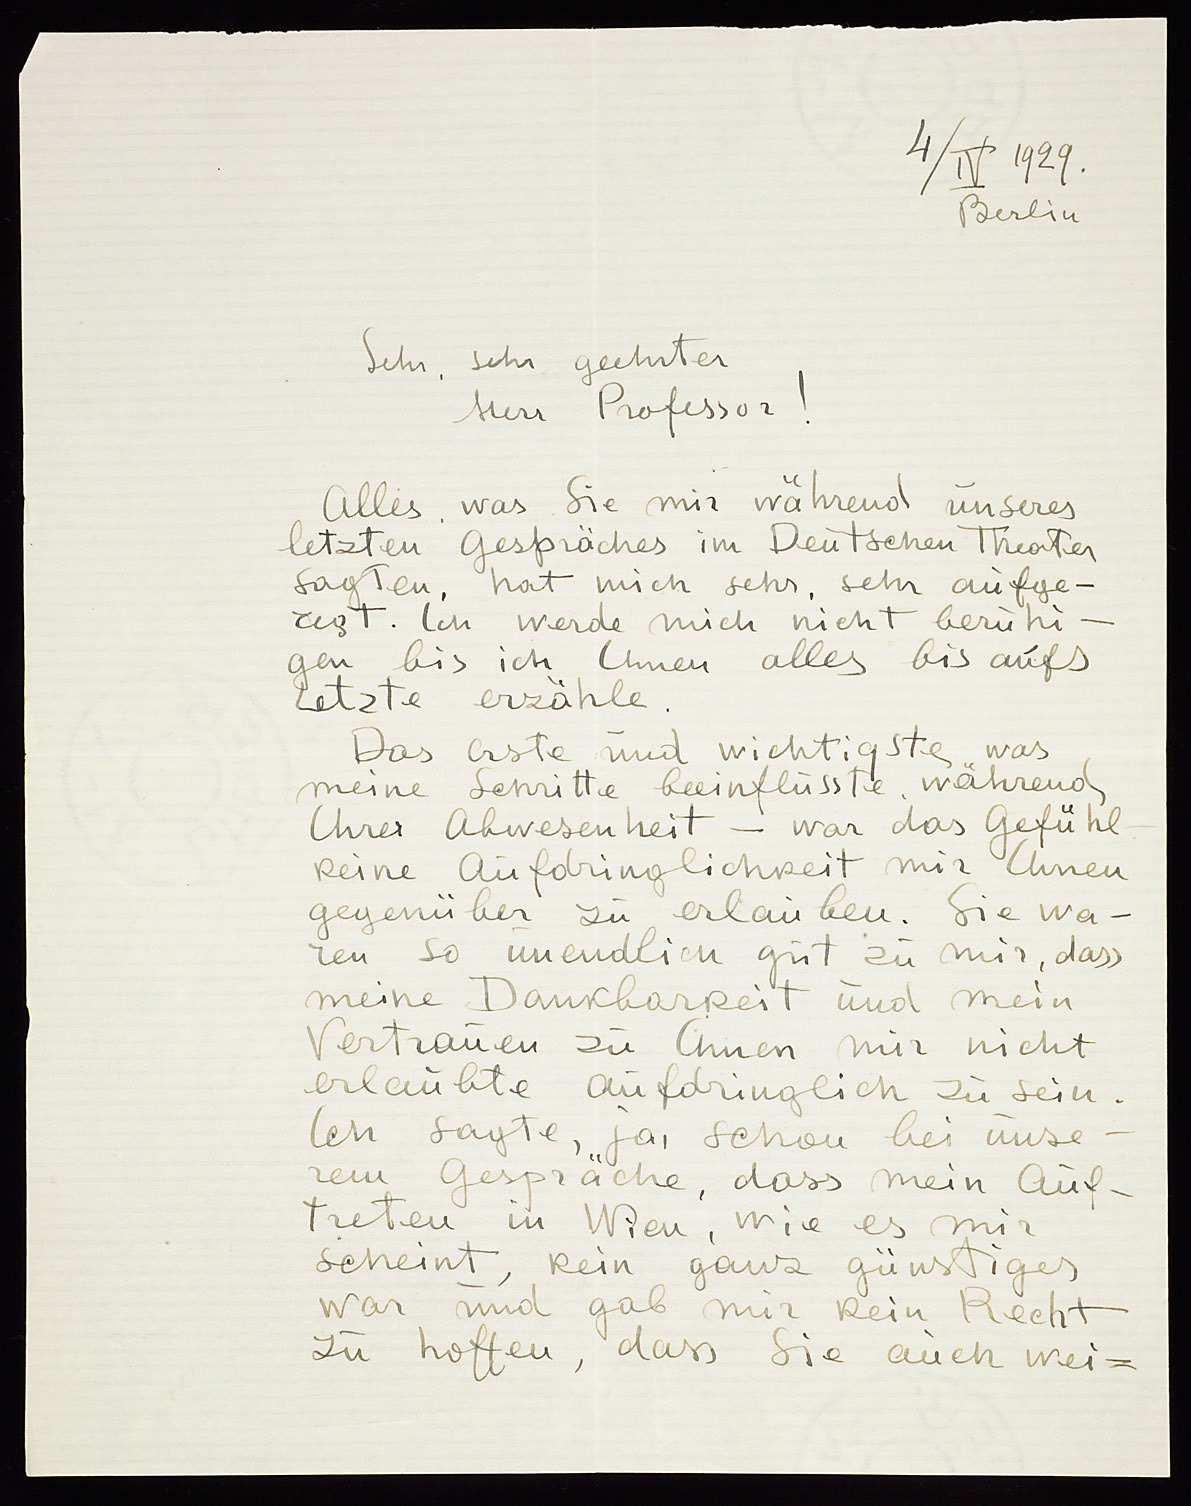 4/IV 1929.
Berlin
Sehr, sehr geehrter
Herr Professor!
Alles, was Sie mir während unseres
letzten Gespräches im Deutschen Theater
sagten, hat mich sehr, sehr aufge-
regt. Ich werde mich nicht beruhi-
gen bis ich Ihnen alles bis aufs
letzte erzähle.
Das erste und wichtigste, was
meine Schritte beeinflusste, während
Ihrer Abwesenheit – war das Gefühl –
keine Aufdringlichkeit mir Ihnen
gegenüber zu erlauben. Sie wa-
ren so unendlich gut zu mir, dass
meine Dankbarkeit und mein
Vertrauen zu Ihnen mir nicht
erlaubte aufdringlich zu sein.
Ich sagte, ja, schon bei unse-
rem Gespräche, dass mein Auf-
treten in Wien, wie es mir
scheint, kein ganz günstiges
war und gab mir kein Recht
zu hoffen, dass Sie auch wei=